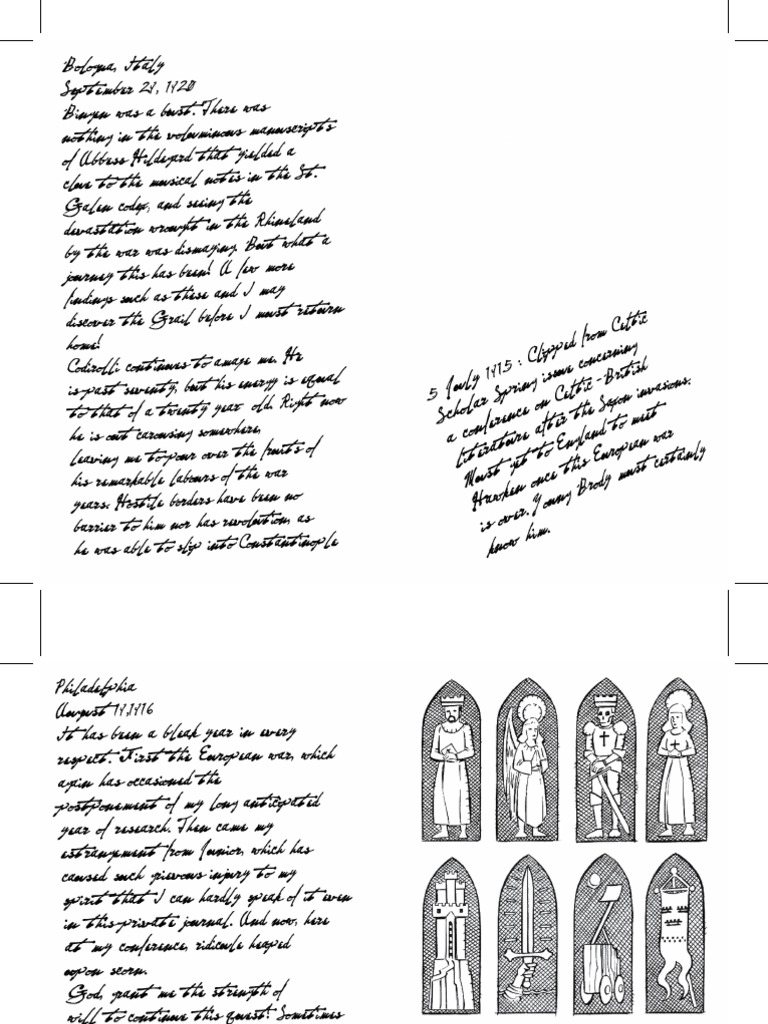 Bologna, Italy
September 29, 1920
Bingen was a bust. There was
nothing in the voluminous manuscripts
of Abbess Hildegard that yielded a
clue to the musical notes in the St.
Galen codex, and seeing the
devastation wrought in the Rhineland
by the war was dismaying. But what a
journey this has been! A few more
findings such as these and I may
discover the Grail before I must return
home!
Codirolli continues to amaze me. He
is past seventy, but his energy is equal
to that of a twenty year old. Right now
he is out carousing somewhere,
leaving me to pour over the fruits of
his remarkable labours of the war
years. Hostile borders have been no
barrier to him nor has revolution, as
he was able to slip into Constantinople
5 July 1915: Clipped from Celtic
Scholar Spring issue concerning
a conference on Celtic-British
literature after the Saxon invasions.
Must yet to England to meet
Hawken once this European war
is over. Young Brody must certainly
know him.
Philadelphia
August 1916
It has been a bleak year in every
respect. First the European war, which
again has occasioned the
postponement of my long anticpated
year of research. Then came my
estrangement from Junior, which has
caused such grievous injury to my
spirit that I can hardly speak of it even
in this private journal. And now, here
at my conference, ridicule heaped
upon scorn.
God, grant me the strength of
will to continue this quest! Sometimes